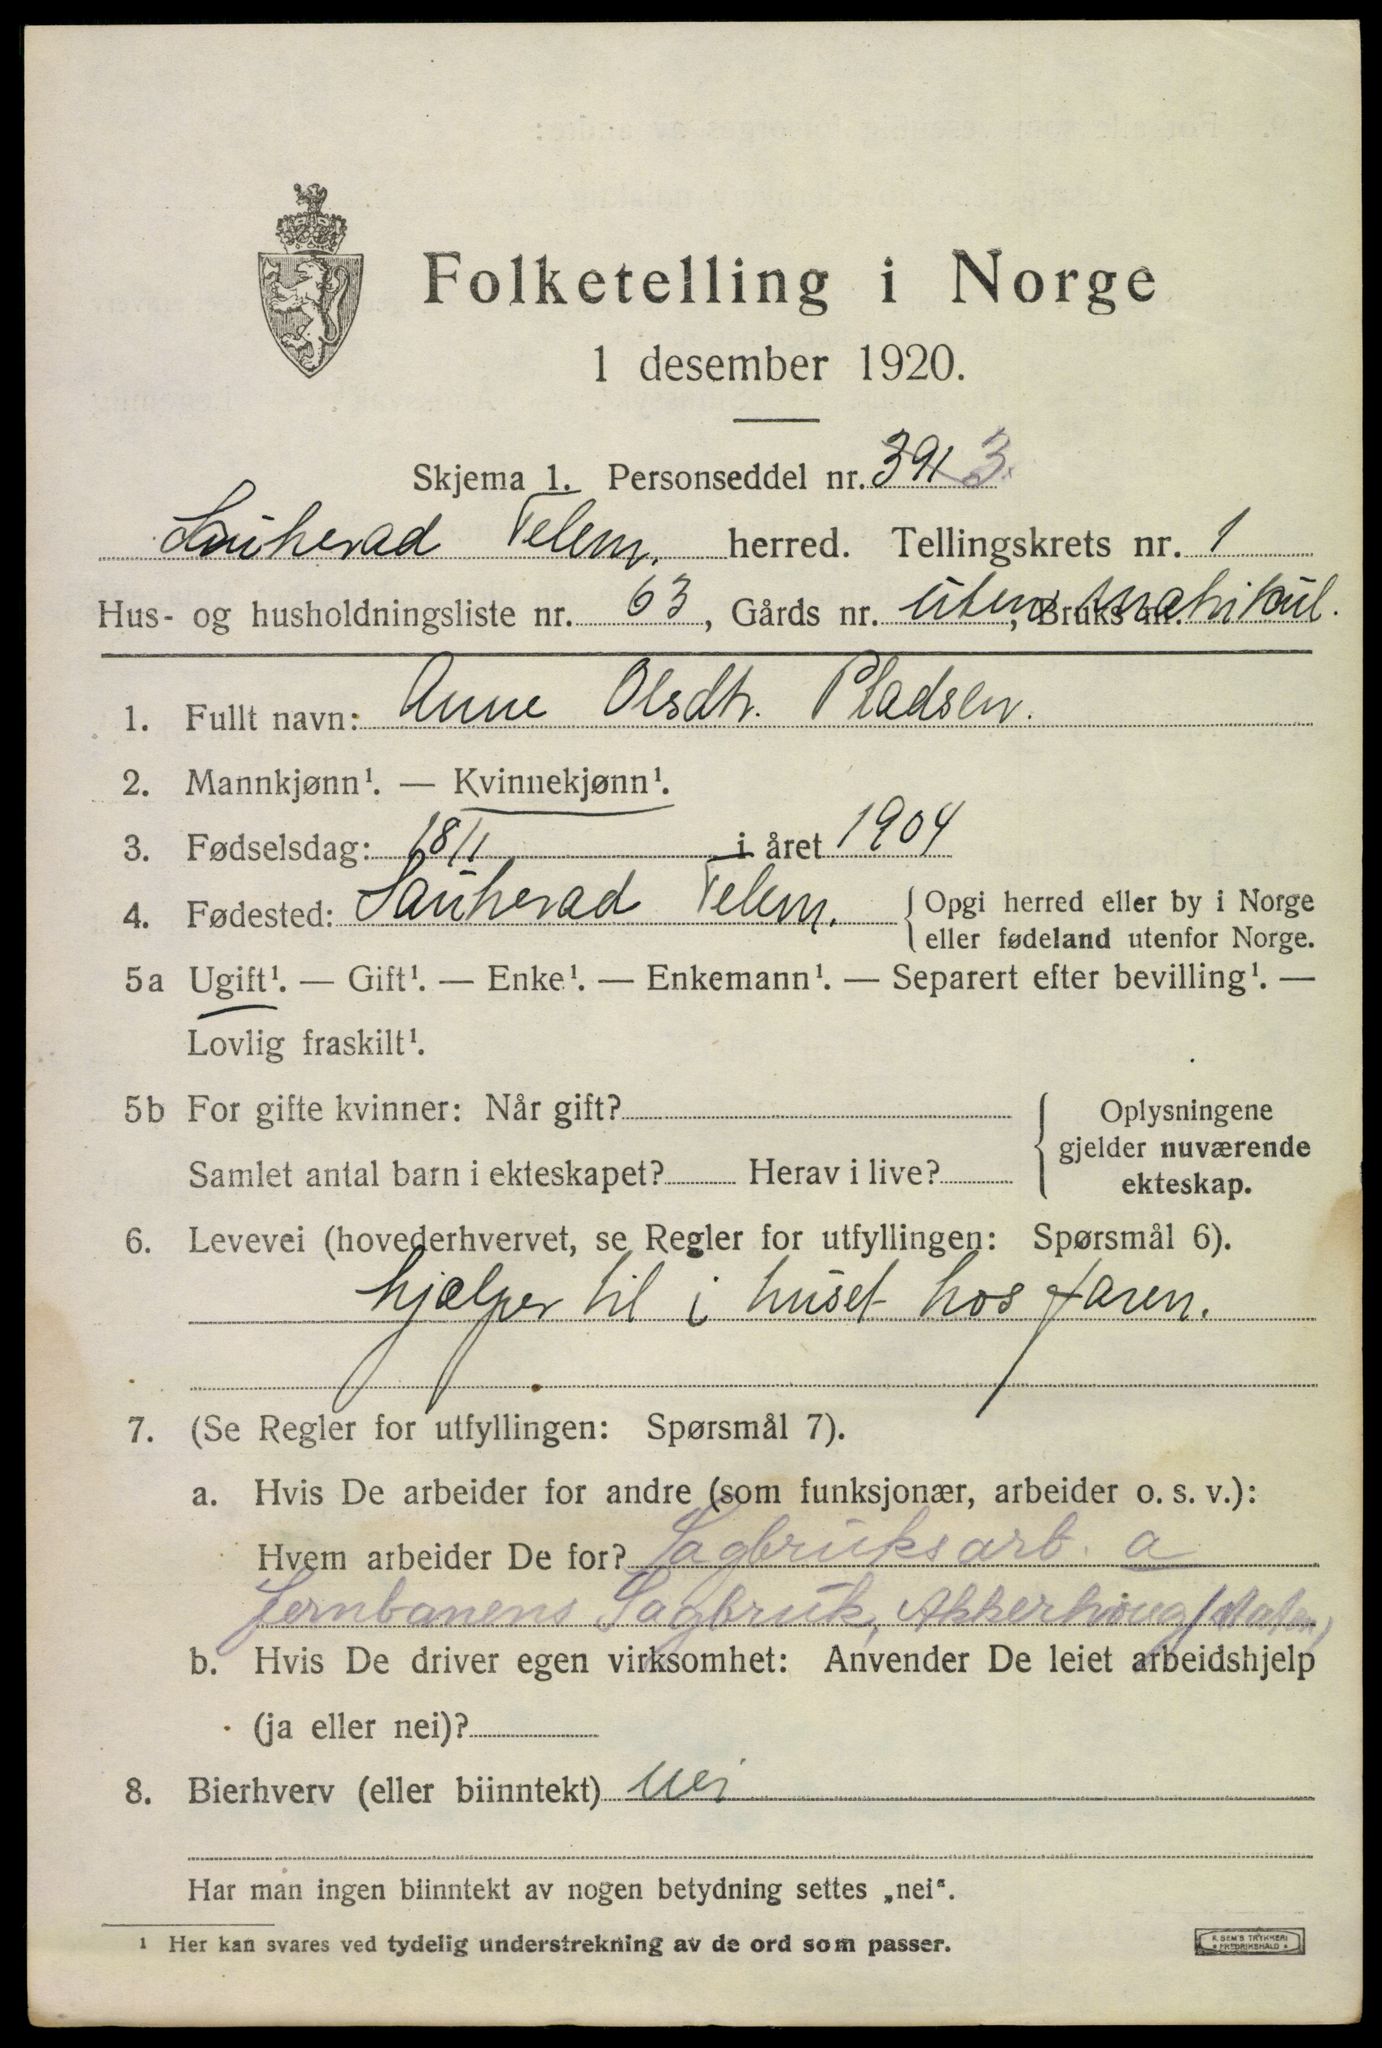 Folketelling i Norge
1 desember 1920.
Skjema 1. Personseddel nr. 391 3.
Sauherad Telem. herred. Tellingskrets nr. 1
Hus- og husholdningsliste nr. 63, Gårds nr. uten, Bruks nr. matrikul.
1. Fullt navn: Anne Olsdtr. Pladsen.
2. Mannkjønn¹. — Kvinnekjønn¹.
3. Fødselsdag: 18/1 i året 1904
4. Fødested: Sauherad Telem. { Opgi herred eller by i Norge
eller fødeland utenfor Norge.
5a Ugift¹. — Gift¹. — Enke¹. — Enkemann¹. — Separert efter bevilling¹. —
Lovlig fraskilt¹.
5b For gifte kvinner: Når gift?
Samlet antal barn i ekteskapet? Herav i live?
{ Oplysningene
gjelder nuværende
ekteskap.
6. Levevei (hovederhvervet, se Regler for utfyllingen: Spørsmål 6).
hjælper til i huset hos faren.
7. (Se Regler for utfyllingen: Spørsmål 7).
a. Hvis De arbeider for andre (som funksjonær, arbeider o. s. v.):
Hvem arbeider De for? Sagbruksarb. a
Jernbanens Sagbruk, Akkerhaug
b. Hvis De driver egen virksomhet: Anvender De leiet arbeidshjelp
(ja eller nei)?
8. Bierhverv (eller biinntekt) nei
Har man ingen biinntekt av nogen betydning settes „nei“.
¹ Her kan svares ved tydelig understrekning av de ord som passer.
K. SEM'S TRYKKERI
FREDRIKSHALD